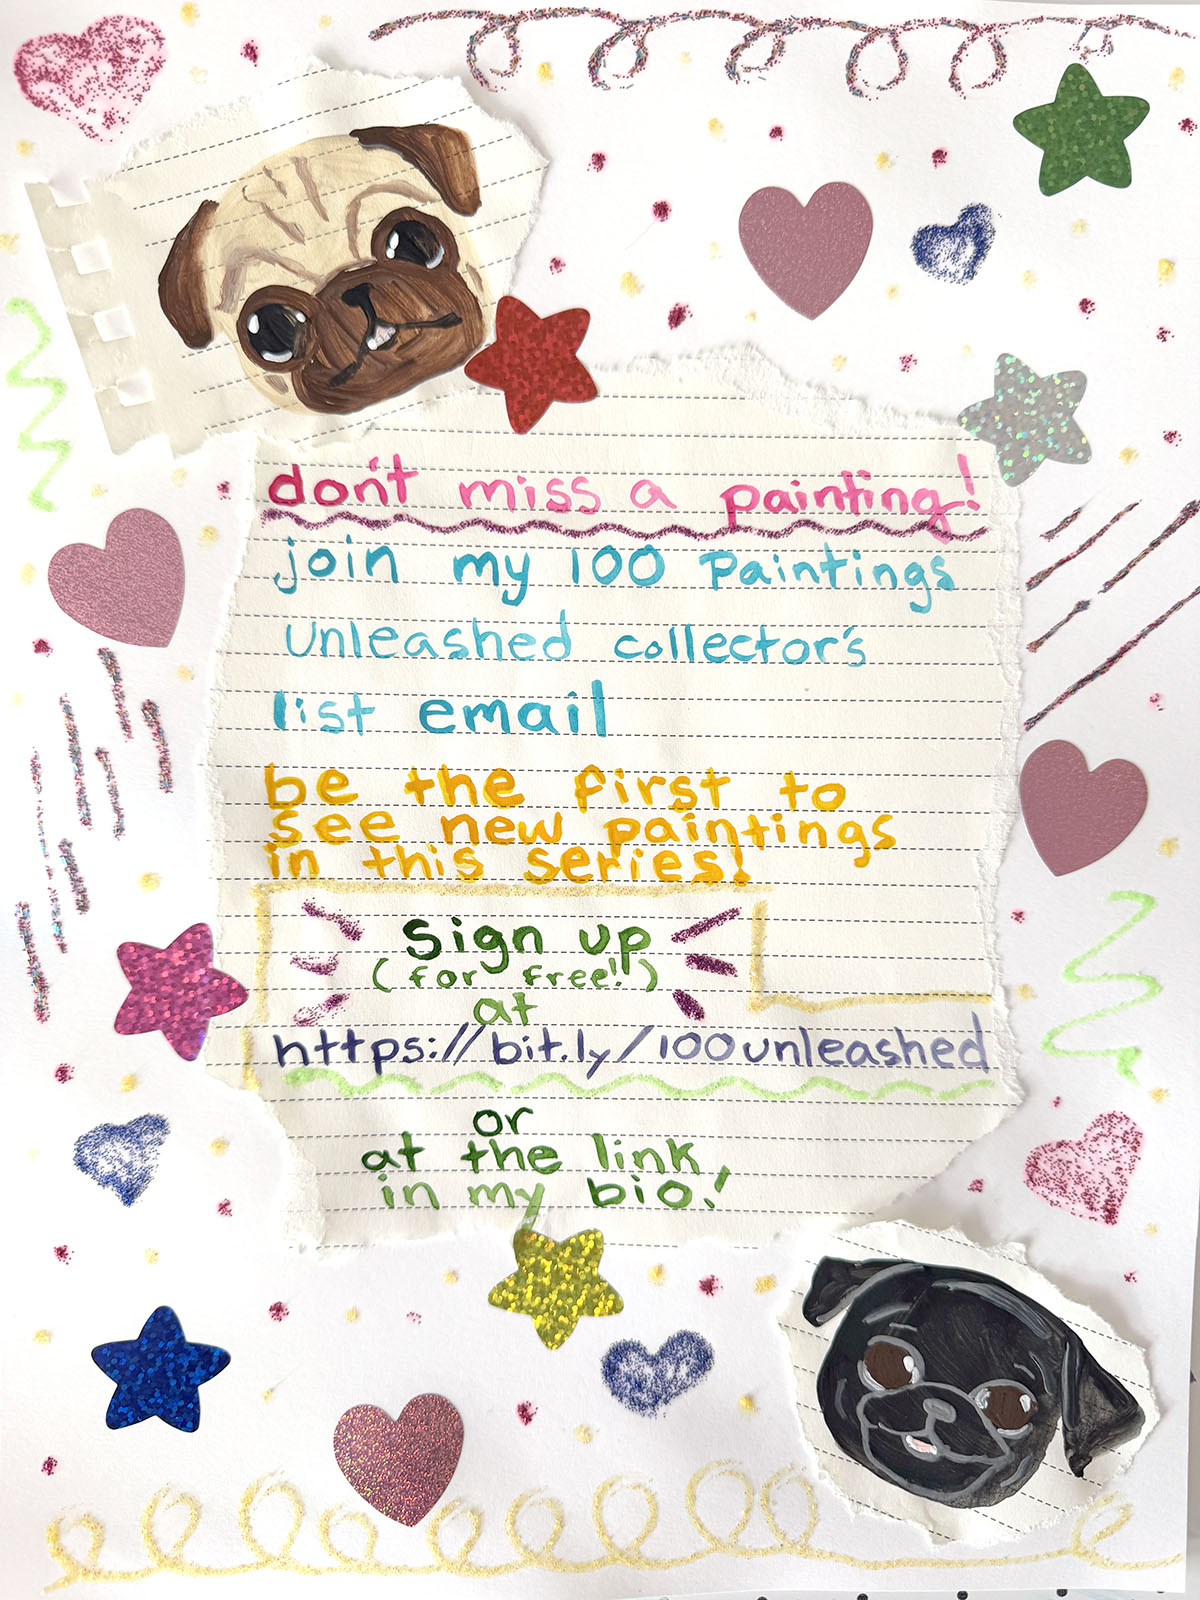 don't miss a painting!
join my 100 Paintings
unleashed collector's
list email
be the first to
see new paintings
in this series!
Sign up
(for free!!)
at
https://bit.ly/100unleashed
or
at the link
in my bio!